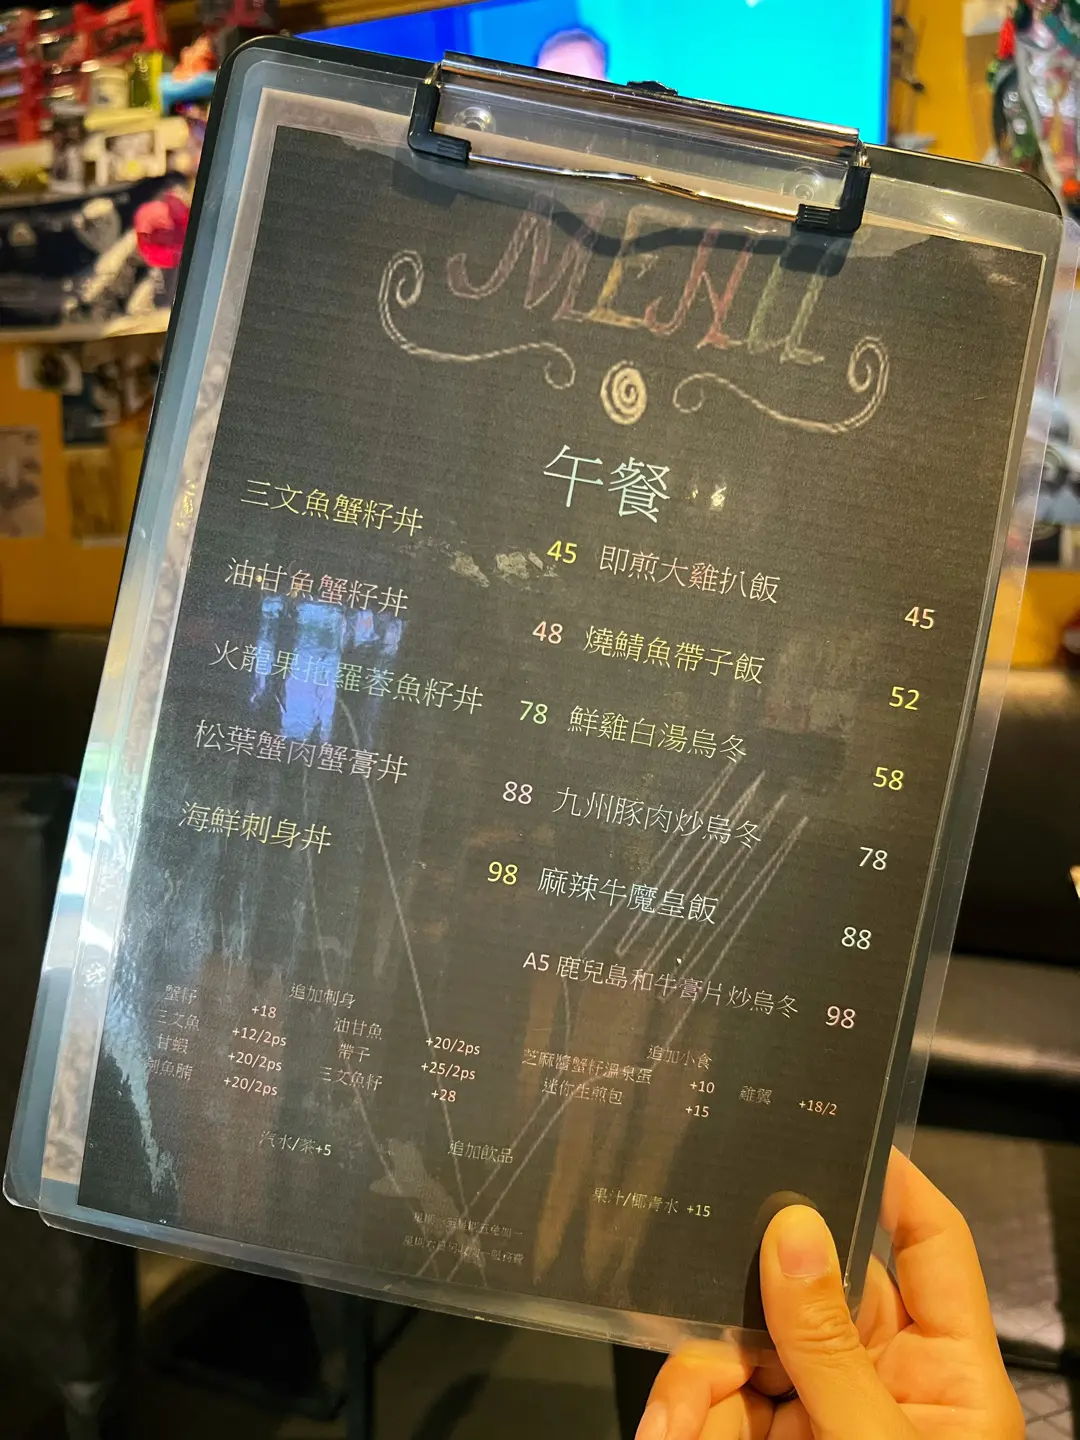 MENU
午餐
三文魚蟹籽丼 45
油甘魚蟹籽丼 48
火龍果拖羅蓉魚籽丼 78
松葉蟹肉蟹膏丼 88
海鮮刺身丼 98
即煎大雞扒飯 45
燒鯖魚帶子飯 52
鮮雞白湯烏冬 58
九州豚肉炒烏冬 78
麻辣牛魔皇飯 88
A5 鹿兒島和牛膏片炒烏冬 98
追加刺身
蟹籽 +18
三文魚 +12/2ps
甘蝦 +20/2ps
劍魚腩 +20/2ps
油甘魚 +20/2ps
帶子 +25/2ps
三文魚籽 +28
追加小食
芝麻醬蟹籽溫泉蛋 +10
迷你生煎包 +15
雞翼 +18/2
追加飲品
汽水/茶+5
果汁/椰青水 +15